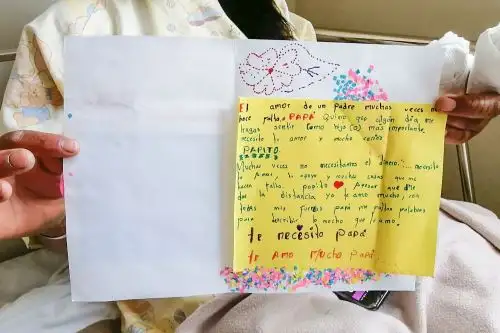 El amor de un padre muchas veces me
hace falta, PAPÁ Quiero que algún día me
hagas sentir como hijo (a) más importante
necesito tu amor y mucho cariño
PAPITO.
Muchas veces no necesitamos el dinero... necesito
tu Amor, tu apoyo y muchas cosas que me
hacen falta. papito Apesar que
la distancia yo te amo mucho, con
todas mis fuerzas papá me faltan palabras
para describir lo mucho que te amo.
te necesito papá
te Amo Mucho Papá